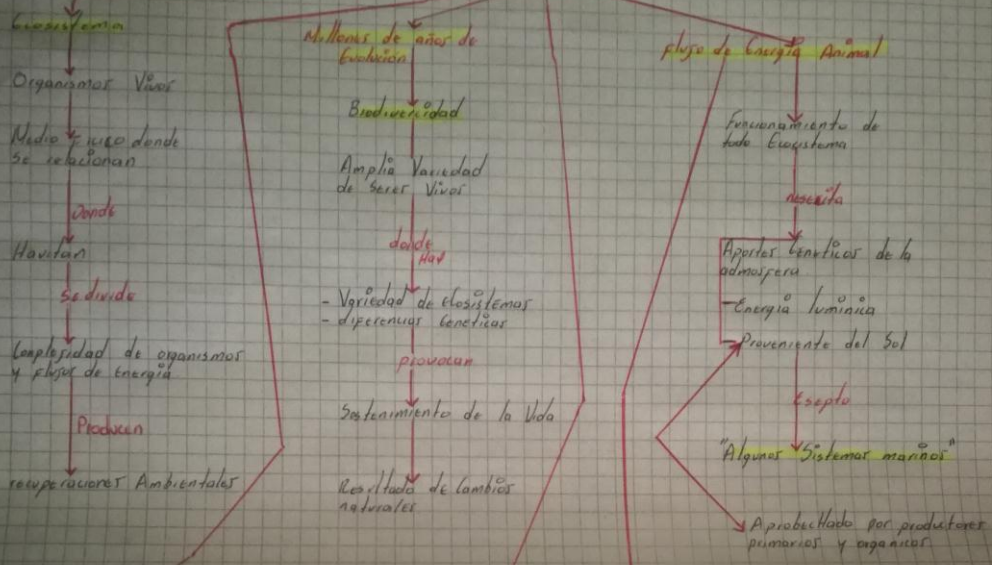 Ecosistema
Organismos Vivos
Medio Fisico donde
se relacionan
Donde
Havitan
Se divide
Complesidad de organismos
y flujos de Energía
Producen
recuperaciones Ambientales
Millones de años de
Evolución
Biodivercidad
Amplia Variedad
de Seres Vivos
donde
Hay
- Variedad de Ecosistemas
- diferencias Geneticas
provocan
Sostenimiento de la Vida
Resultado de Cambios
naturales
flujo de Energía Animal
Funcionamiento de
todo Ecosistema
nesesita
Aportes Geneticos de la
admosfera
- Energia luminica
- Proveniente del Sol
Esepto
"Algunos Sistemas marinos"
Aprobechado por productores
primarios y organicos